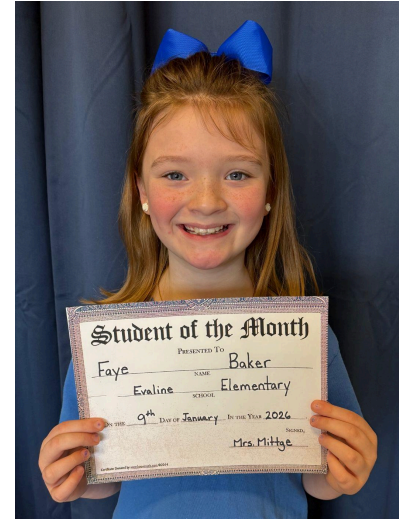 Student of the Month
PRESENTED TO
Faye Baker
NAME
Evaline Elementary
SCHOOL
ON THE 9th DAY OF January IN THE YEAR 2026
SIGNED,
Mrs. Mittge